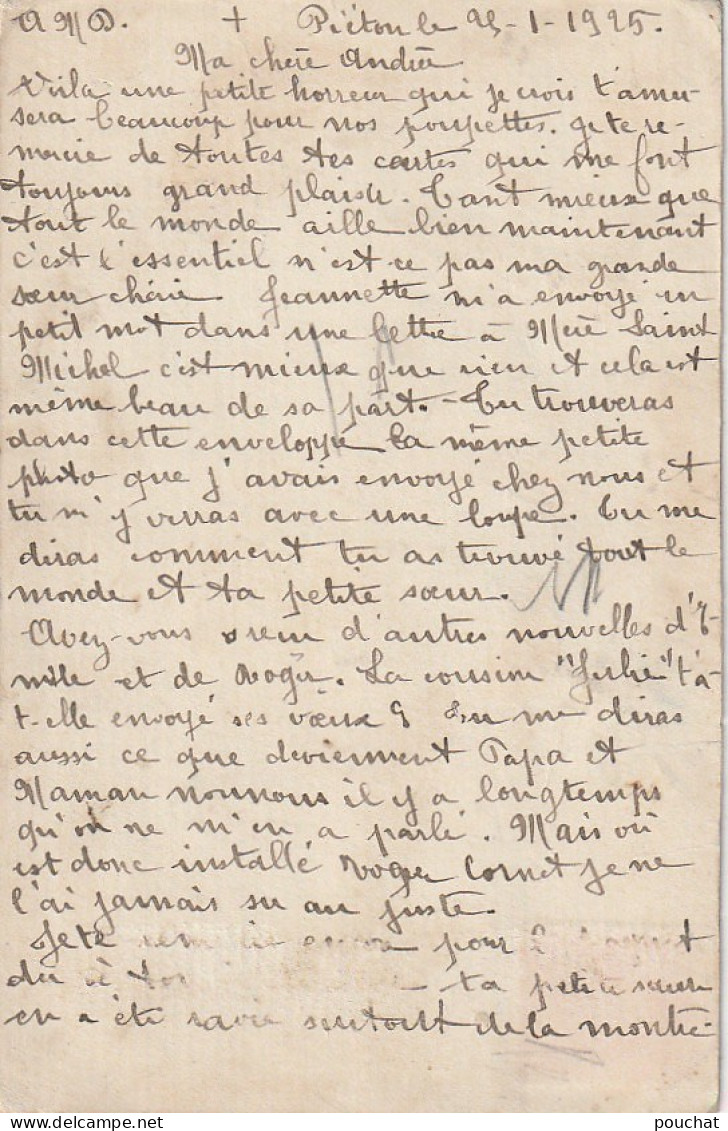 A M D. + Piéton le 25-1-1925.
Ma chère Andrée
Voila une petite horreur qui je crois t'amu-
sera beaucoup pour nos poupettes. Je te re-
mercie de toutes tes cartes qui me font
toujours grand plaisir. Tant mieux que
tout le monde aille bien maintenant
c'est l'essentiel n'est ce pas ma grande
sœur chérie. Jeannette m'a envoyé un
petit mot dans une lettre à Mère Saint
Michel c'est mieux que rien et cela est
même beau de sa part. - Tu trouveras
dans cette enveloppe la même petite
photo que j'avais envoyé chez nous et
tu m'y verras avec une loupe. Tu me
diras comment tu as trouvé tout le
monde et ta petite sœur.
Avez-vous reçu d'autres nouvelles d'E-
mile et de Roger. La cousine "Julie" t'a-
t-elle envoyé ses vœux ? Tu me diras
aussi ce que deviennent Papa et
Maman nounous il y a longtemps
qu'on ne m'en a parlé. Mais où
est donc installé Roger Cornet je ne
l'ai jamais su au juste.
Je te remercie encore pour
du ta petite sœur
en a été ravie surtout de la montre
pouchat